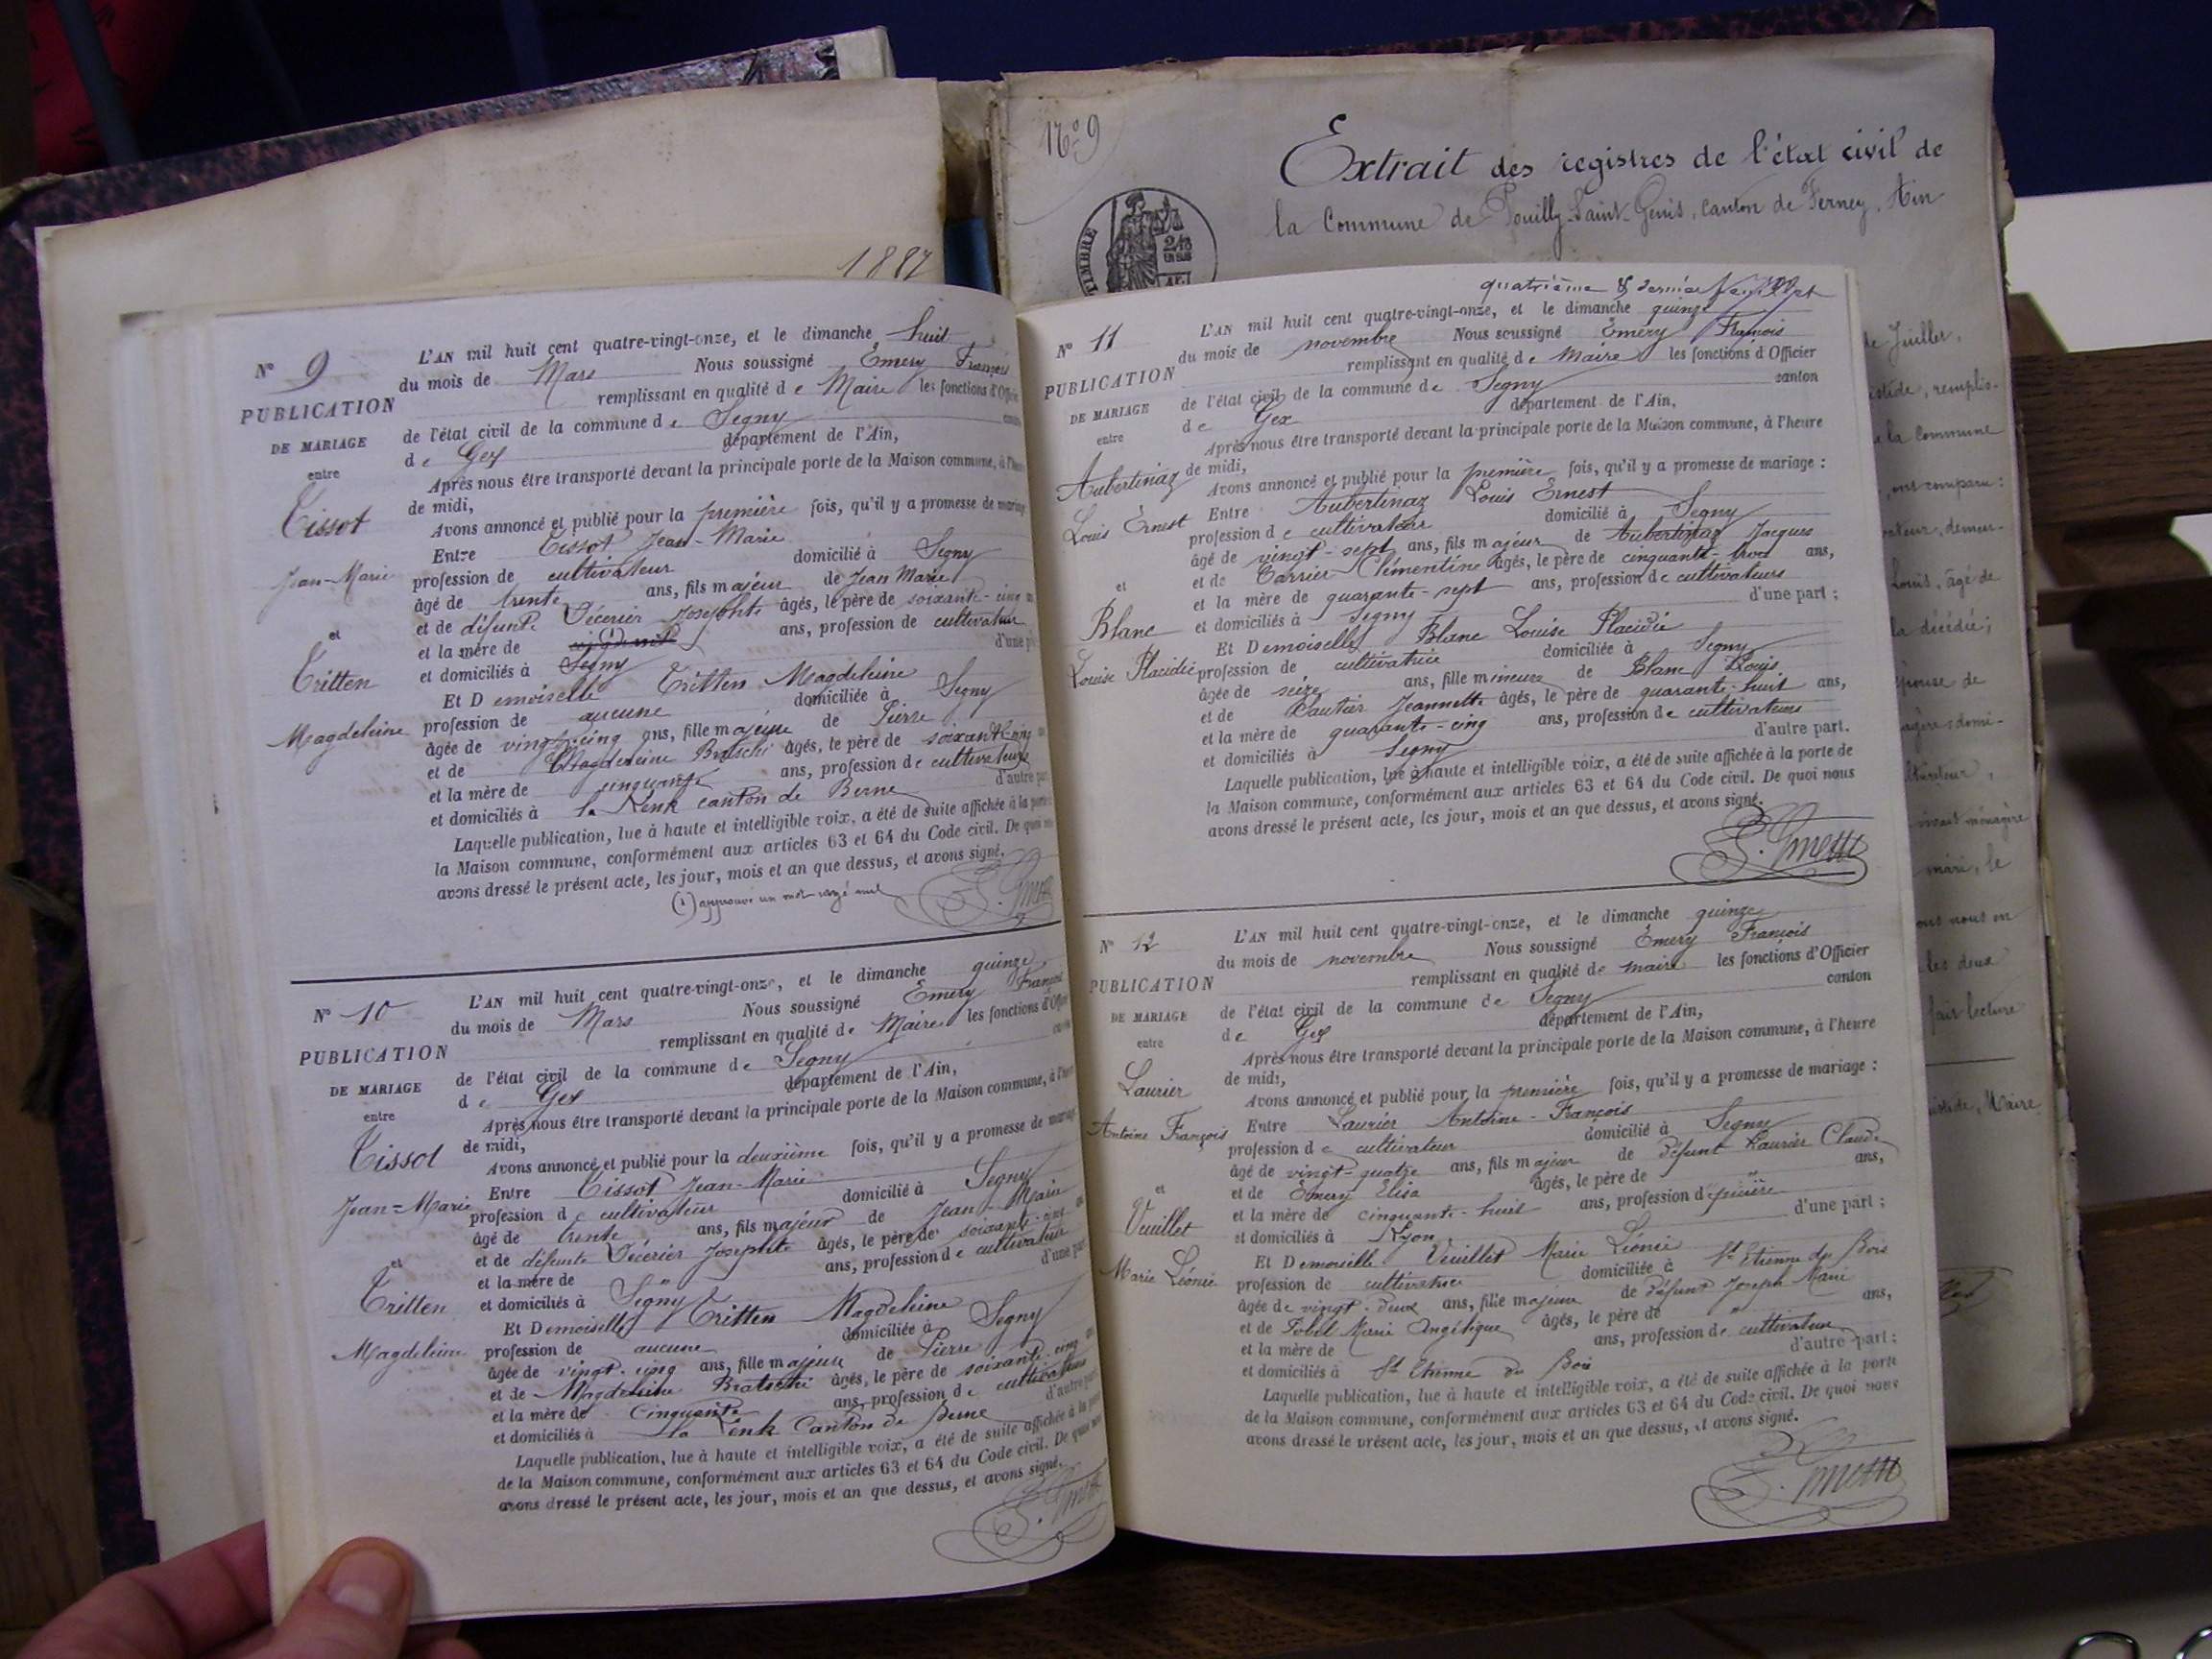 1887
No 9
Extrait des registres de l'état civil de
la Commune de Pouilly-Saint-Genis, canton de Ferney, Ain
TIMBRE
No 9
PUBLICATION
DE MARIAGE
entre
Tissot
Jean-Marie
et
Tritten
Magdeleine
L'AN mil huit cent quatre-vingt-onze, et le dimanche huit
du mois de Mars Nous soussigné Emery François
remplissant en qualité de Maire les fonctions d'Offi
de l'état civil de la commune de Segny
de Gex département de l'Ain,
Après nous être transporté devant la principale porte de la Maison commune, à l'heure
de midi,
Avons annoncé et publié pour la première fois, qu'il y a promesse de mariage
Entre Tissot Jean-Marie
profession de cultivateur domicilié à Segny
âgé de trente ans, fils majeur de Jean Marie
et de défunte Josephte âgés, le père de soixante-cinq
et la mère de ans, profession de cultivateur
et domiciliés à Segny d'une p
Et Demoiselle Tritten Magdeleine
profession de aucune domiciliée à Segny
âgée de vingt-cinq ans, fille majeure de Pierre
et de Magdeleine Bratschi âgés, le père de soixante-cinq
et la mère de cinquante ans, profession de cultivateurs
et domiciliés à la Lenk canton de Berne d'autre par
Laquelle publication, lue à haute et intelligible voix, a été de suite affichée à la porte
la Maison commune, conformément aux articles 63 et 64 du Code civil. De quoi
avons dressé le présent acte, les jour, mois et an que dessus, et avons signé.
(1) approuvé un mot rayé nul
No 10
PUBLICATION
DE MARIAGE
entre
Tissot
Jean-Marie
et
Tritten
Magdeleine
L'AN mil huit cent quatre-vingt-onze, et le dimanche quinze
du mois de Mars Nous soussigné Emery François
remplissant en qualité de Maire les fonctions d'Offi
de l'état civil de la commune de Segny
de Gex département de l'Ain,
Après nous être transporté devant la principale porte de la Maison commune, à l'heure
de midi,
Avons annoncé et publié pour la deuxième fois, qu'il y a promesse de mariage
Entre Tissot Jean-Marie
profession de cultivateur domicilié à Segny
âgé de trente ans, fils majeur de Jean-Marie
et de défunte Josephte âgés, le père de soixante-cinq
et la mère de " ans, profession de cultivateur
et domiciliés à Segny d'une part
Et Demoiselle Tritten Magdeleine
profession de aucune domiciliée à Segny
âgée de vingt-cinq ans, fille majeure de Pierre
et de Magdeleine Bratschi âgés, le père de soixante-cinq
et la mère de cinquante ans, profession de cultivateurs
et domiciliés à la Lenk Canton de Berne d'autre part
Laquelle publication, lue à haute et intelligible voix, a été de suite affichée à la porte
de la Maison commune, conformément aux articles 63 et 64 du Code civil. De quoi nous
avons dressé le présent acte, les jour, mois et an que dessus, et avons signé.
quatrième & dernier
No 11
PUBLICATION
DE MARIAGE
entre
Aubertinaz
Louis Ernest
et
Blanc
Louise Placidie
L'AN mil huit cent quatre-vingt-onze, et le dimanche quinze
du mois de novembre Nous soussigné Emery François
remplissant en qualité de Maire les fonctions d'Officier
de l'état civil de la commune de Segny canton
de Gex département de l'Ain,
Après nous être transporté devant la principale porte de la Maison commune, à l'heure
de midi,
Avons annoncé et publié pour la première fois, qu'il y a promesse de mariage :
Entre Aubertinaz Louis Ernest
profession de cultivateur domicilié à Segny
âgé de vingt-sept ans, fils majeur de Aubertinaz Jacques
et de Carrier Clémentine âgés, le père de cinquante-trois ans,
et la mère de quarante-sept ans, profession de cultivateurs
et domiciliés à Segny d'une part ;
Et Demoiselle Blanc Louise Placidie
profession de cultivatrice domiciliée à Segny
âgée de seize ans, fille mineure de Blanc Louis
et de Gautier Jeannette âgés, le père de quarante-huit ans,
et la mère de quarante-cinq ans, profession de cultivateurs
et domiciliés à Segny d'autre part.
Laquelle publication, lue à haute et intelligible voix, a été de suite affichée à la porte de
la Maison commune, conformément aux articles 63 et 64 du Code civil. De quoi nous
avons dressé le présent acte, les jour, mois et an que dessus, et avons signé.
No 12
PUBLICATION
DE MARIAGE
entre
Laurier
Antoine François
et
Vuillet
Marie Léonie
L'AN mil huit cent quatre-vingt-onze, et le dimanche quinze
du mois de novembre Nous soussigné Emery François
remplissant en qualité de maire les fonctions d'Officier
de l'état civil de la commune de Segny canton
de Gex département de l'Ain,
Après nous être transporté devant la principale porte de la Maison commune, à l'heure
de midi,
Avons annoncé et publié pour la première fois, qu'il y a promesse de mariage :
Entre Laurier Antoine-François
profession de cultivateur domicilié à Segny
âgé de vingt-quatre ans, fils majeur de défunt Laurier Claude
et de Emery Elisa âgés, le père de " ans,
et la mère de cinquante-huit ans, profession d
et domiciliés à Lyon d'une part ;
Et Demoiselle Vuillet Marie Léonie
profession de cultivatrice domiciliée à St Etienne du Bois
âgée de vingt-deux ans, fille majeure de défunt Joseph Marie
et de Fobel Marie Angélique âgés, le père de " ans,
et la mère de ans, profession de cultivateur
et domiciliés à St Etienne du Bois d'autre part ;
Laquelle publication, lue à haute et intelligible voix, a été de suite affichée à la porte
de la Maison commune, conformément aux articles 63 et 64 du Code civil. De quoi nous
avons dressé le présent acte, les jour, mois et an que dessus, et avons signé.
de Juillet,
remplis-
la Commune
ont comparu :
demeu-
Louis, âgé de
décédée ;
épouse de
ménagère
les deux
fait lecture
Maire